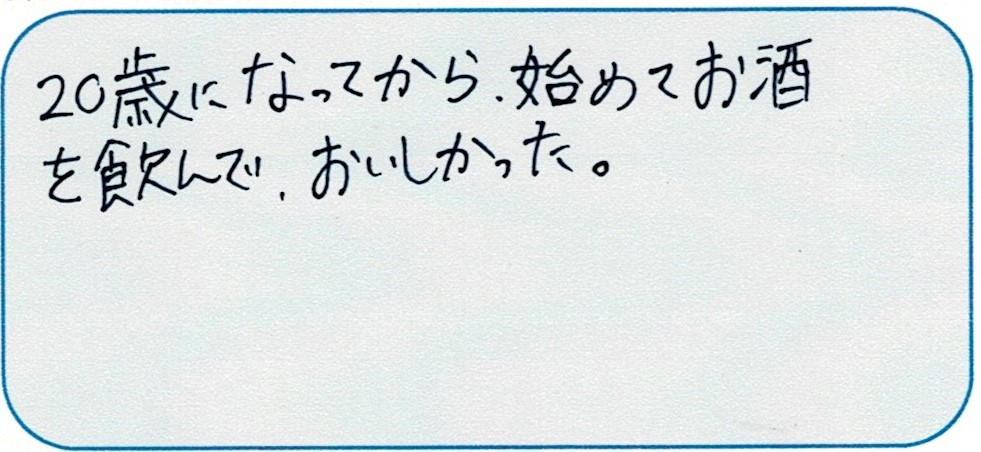 20歳になってから、始めてお酒
を飲んで、おいしかった。